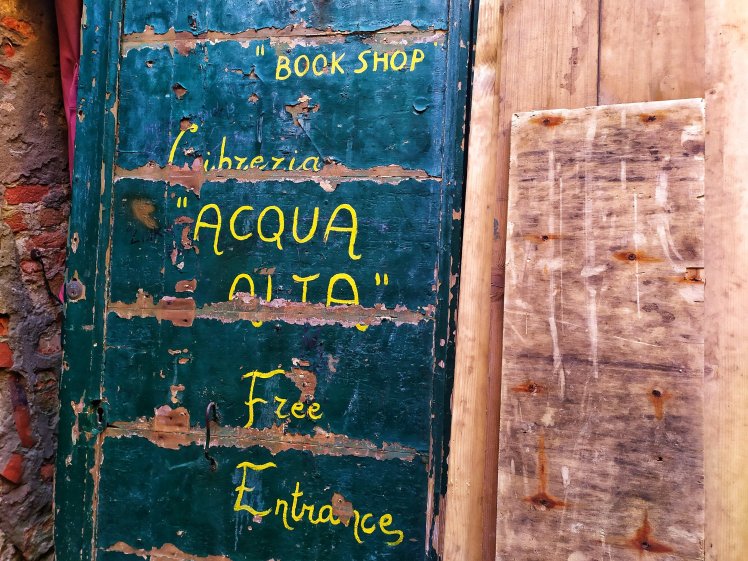 "BOOK SHOP"
Libreria
"ACQUA
ALTA"
Free
Entrance